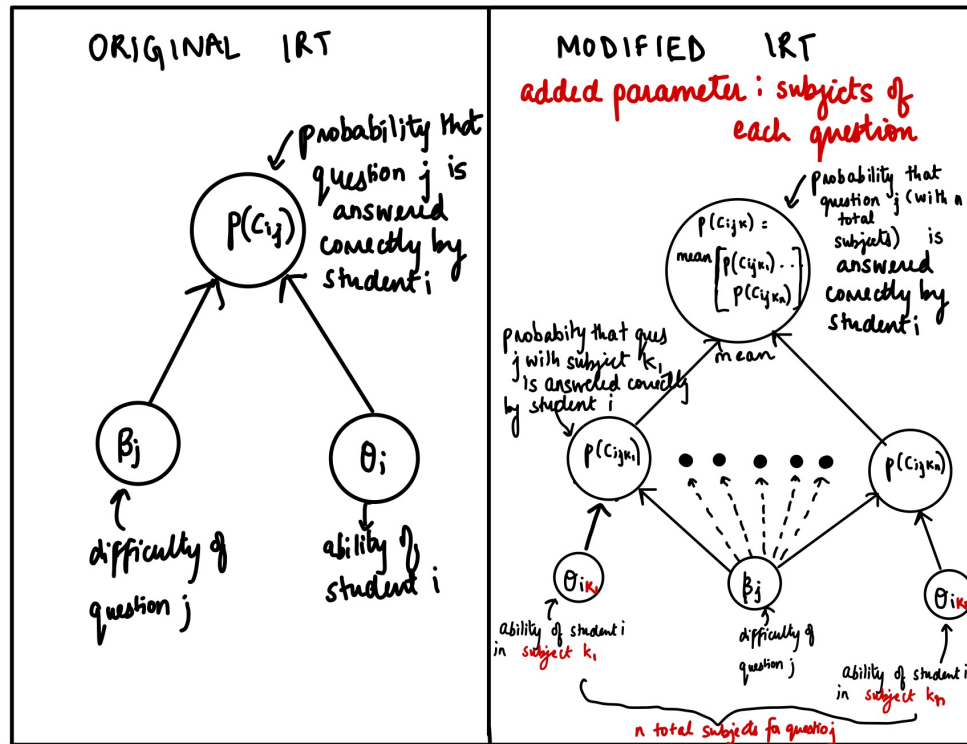 ORIGINAL IRT
probability that
question j is
answered
correctly by
student i
p(Cij)
βj
θi
difficulty of
question j
ability of
student i
MODIFIED IRT
added parameter : subjects of
each question
probability that
question j (with n
total
subjects) is
answered
correctly by
student i
p(Cijk) =
mean [p(Cijk₁) ...
p(Cijkn)]
mean
probabity that ques
j with subject k₁
is answered correctly
by student i
p(Cijk₁)
p(Cijkn)
θik₁
βj
θikn
ability of student i
in subject k₁
difficulty of
question j
ability of student i
in subject kn
n total subjects for question j